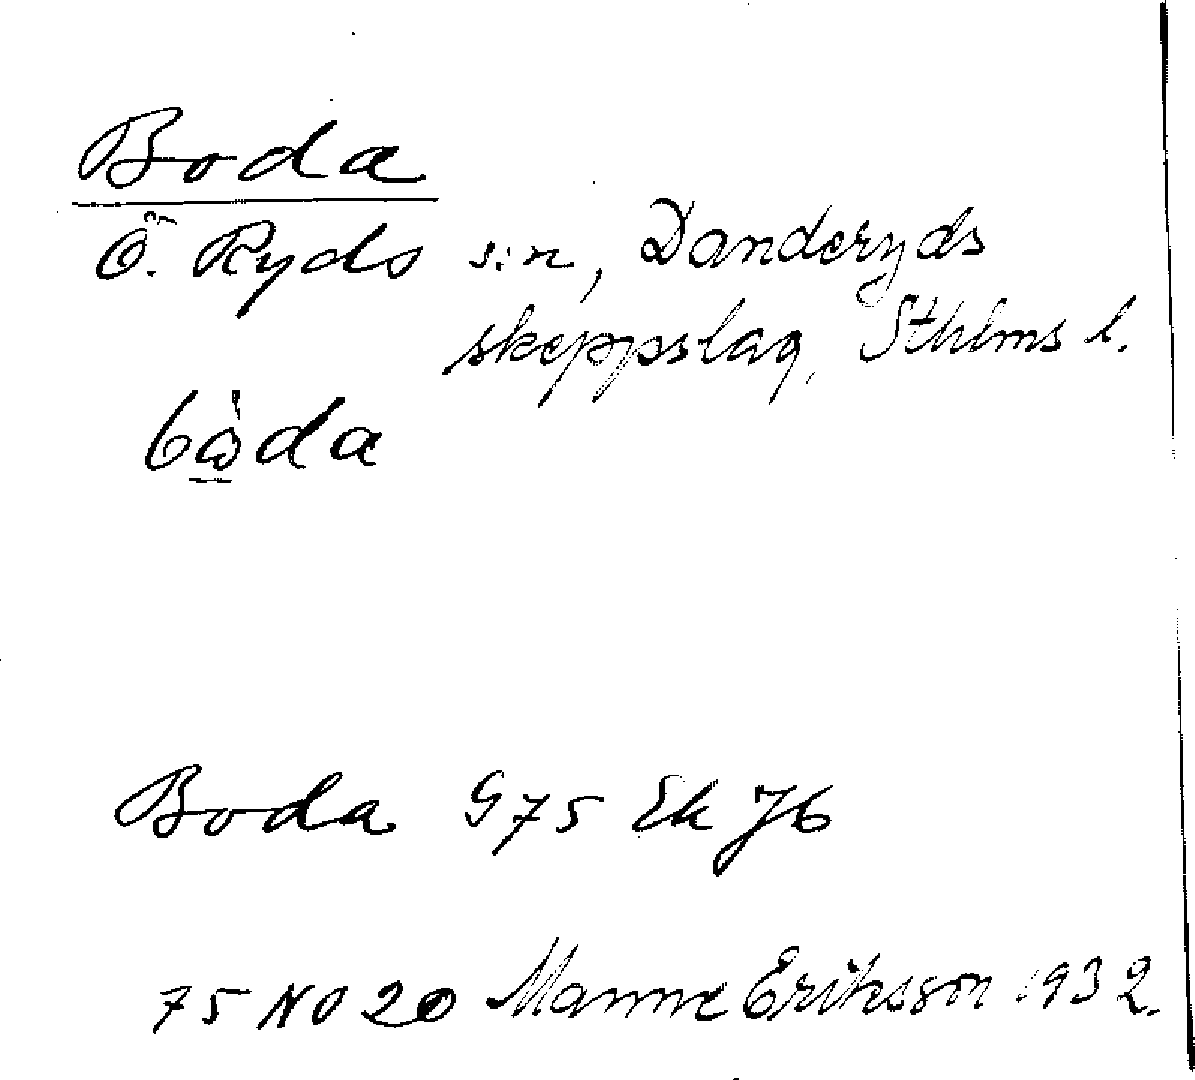 Boda
Ö. Ryds s:n, Danderyds
skeppslag, Sthlms l.
bὼda
Boda G75 Ek J6
75 NO 20 Manne Eriksson 1932.